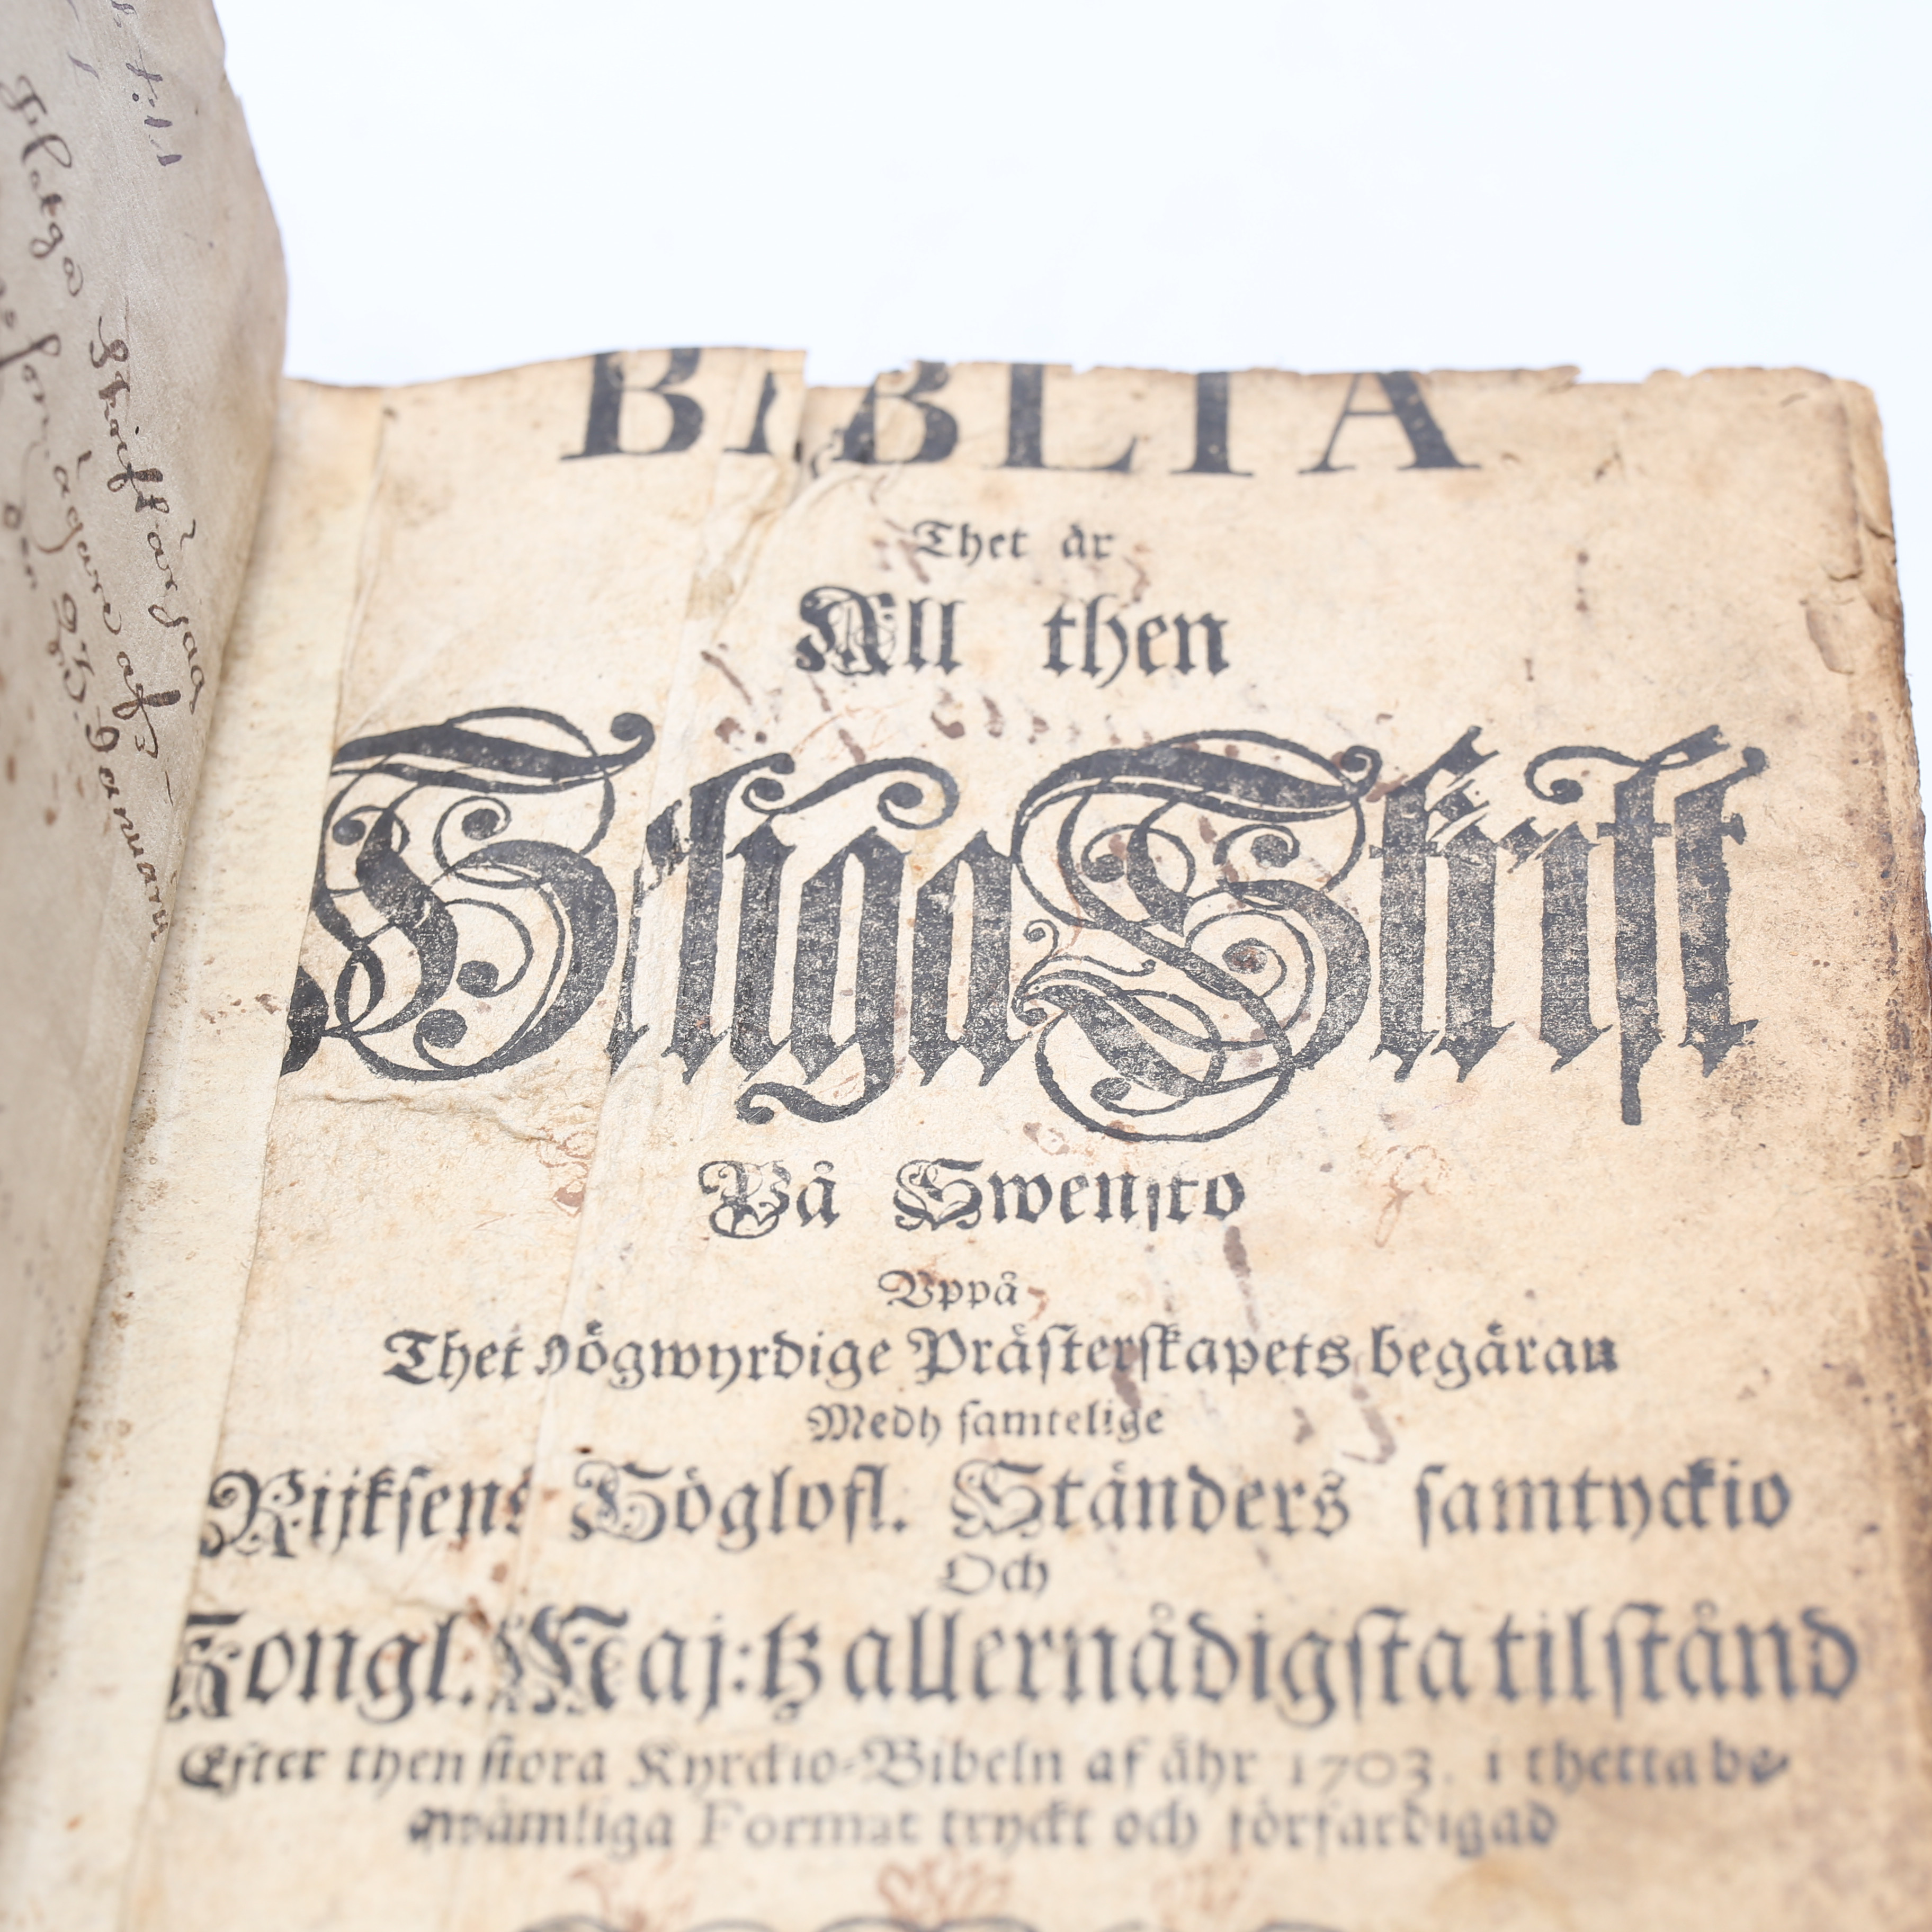 Helga Skrift är jag
ägare af
den 25. Januarii
BIBLIA
Thet är
All then
Helga Skrift
På Swensko
Vppå
Thet Högwyrdige Prästerskapets begäran
Medh samtelige
Rijksens Höglofl. Ständers samtyckio
Och
Kongl. Maj:tz allernådigsta tilstånd
Efter then stora Kyrckio-Bibeln af åhr 1703. i thetta be-
qwämliga Format tryckt och förfärdigad